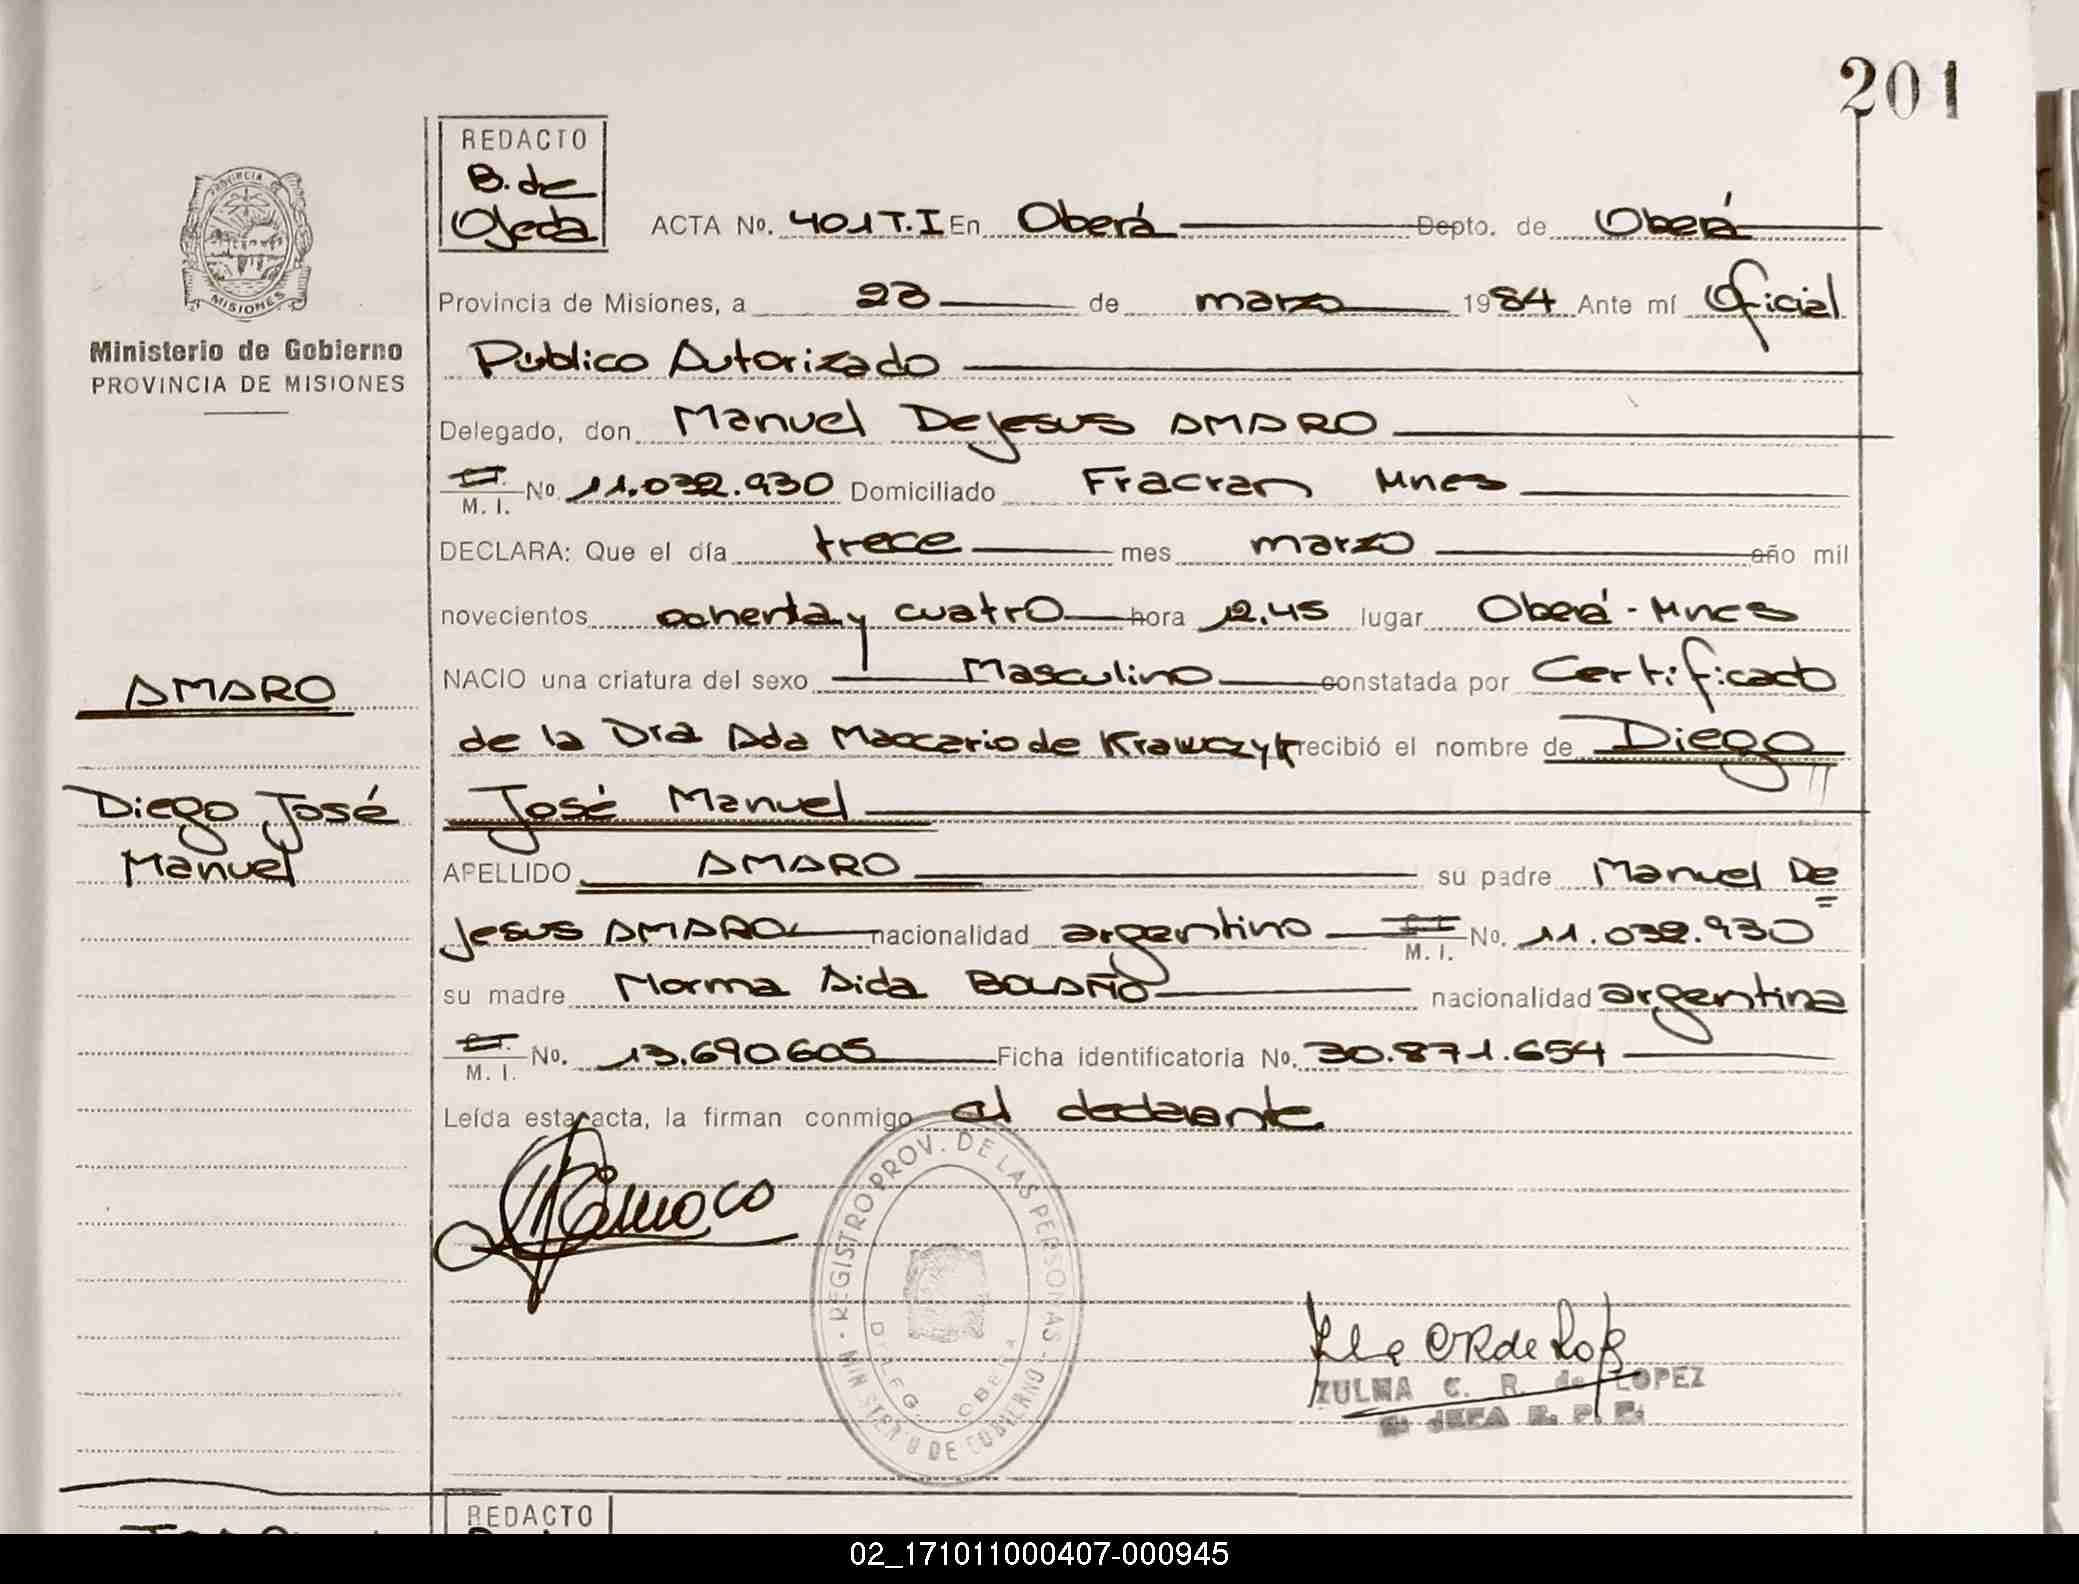 201
REDACTO
B. de
Ojeda
ACTA No. 401 T.I En Oberá Depto. de Oberá
PROVINCIA DE
MISIONES
Provincia de Misiones, a de marzo 1984 Ante mí Oficial
Ministerio de Gobierno
PROVINCIA DE MISIONES
Público Autorizado
Delegado, don Manuel De Jesus AMARO
M. I. No 11.032.930 Domiciliado Fracran Mnes
DECLARA: Que el día trece mes marzo año mil
novecientos ochenta y cuatro hora 12,45 lugar Oberá - Mnes
NACIO una criatura del sexo Masculino constatada por Certificado
AMARO
de la Dra Ada Maccario de Krawczyk recibió el nombre de Diego
Diego José
José Manuel
Manuel
APELLIDO AMARO su padre Manuel De
Jesus AMARO nacionalidad argentino M. I. No. 11.032.930
su madre Norma Aida BOLAÑO nacionalidad argentina
M. I. No. 13.690.605 Ficha identificatoria No. 30.871.654
Leída esta acta, la firman conmigo el declarante
REGISTRO PROV. DE LAS PERSONAS - MINISTERIO DE GOBIERNO
DELEG. OBERA
ZULMA C. R. de LOPEZ
JEFA R. P. P.
REDACTO
02_171011000407-000945